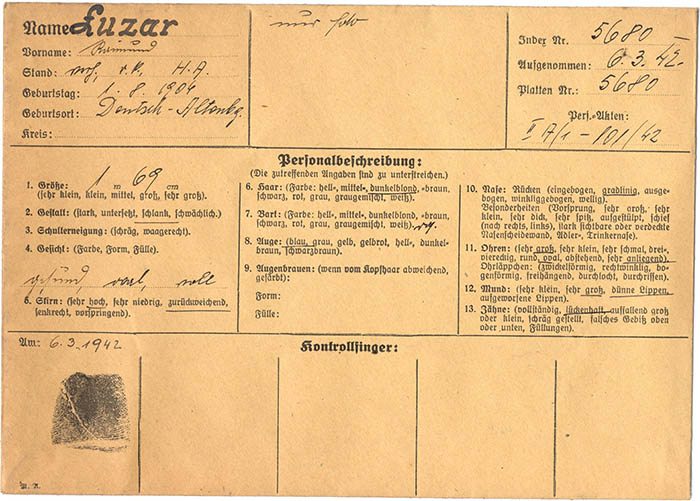 Name Luzar
Vorname: Raimund
Stand: r.k. H.A.
Geburtstag: 1.8.1904
Geburtsort: Deutsch-Altenbg.
Kreis:
nur
Index Nr. 5680
Aufgenommen: 6.3.42
Platten Nr.: 5680
Pers.-Akten:
II A/1 - 101/42
Personalbeschreibung:
(Die zutreffenden Angaben sind zu unterstreichen.)
1. Größe: 1 m 69 cm
(sehr klein, klein, mittel, groß, sehr groß).
2. Gestalt: (stark, untersetzt, schlank, schwächlich.)
3. Schulterneigung: (schräg, waagerecht).
4. Gesicht: (Farbe, Form, Fülle).
gesund, oval, voll
5. Stirn: (sehr hoch, sehr niedrig, zurückweichend,
senkrecht, vorspringend).
6. Haar: (Farbe: hell-, mittel-, dunkelblond, -braun,
schwarz, rot, grau, graugemischt, weiß).
7. Bart: (Farbe: hell-, mittel-, dunkelblond, -braun,
schwarz, rot, grau, graugemischt, weiß).
8. Auge: (blau, grau, gelb, gelbrot, hell-, dunkel-
braun, schwarzbraun).
9. Augenbrauen: (wenn vom Kopfhaar abweichend,
gefärbt):
Form:
Fülle:
10. Nase: Rücken (eingebogen, gradlinig, ausge-
bogen, winkliggebogen, wellig).
Besonderheiten (Vorsprung, sehr groß, sehr
klein, sehr dick, sehr spitz, aufgestülpt, schief
(nach rechts, links), stark sichtbare oder verdeckte
Nasenscheidewand, Adler-, Trinkernase).
11. Ohren: (sehr groß, sehr klein, sehr schmal, drei-,
viereckig, rund, oval, abstehend, sehr anliegend)
Ohrläppchen: (zwickelförmig, rechtwinklig, bo-
genförmig, freihängend, durchlocht, durchrissen).
12. Mund: (sehr klein, sehr groß, dünne Lippen,
aufgeworfene Lippen).
13. Zähne: (vollständig, lückenhaft, auffallend groß
oder klein, schräg gestellt, falsches Gebiß oben
oder unten, Füllungen).
Am: 6.3.1942
Kontrollfinger:
M. A.